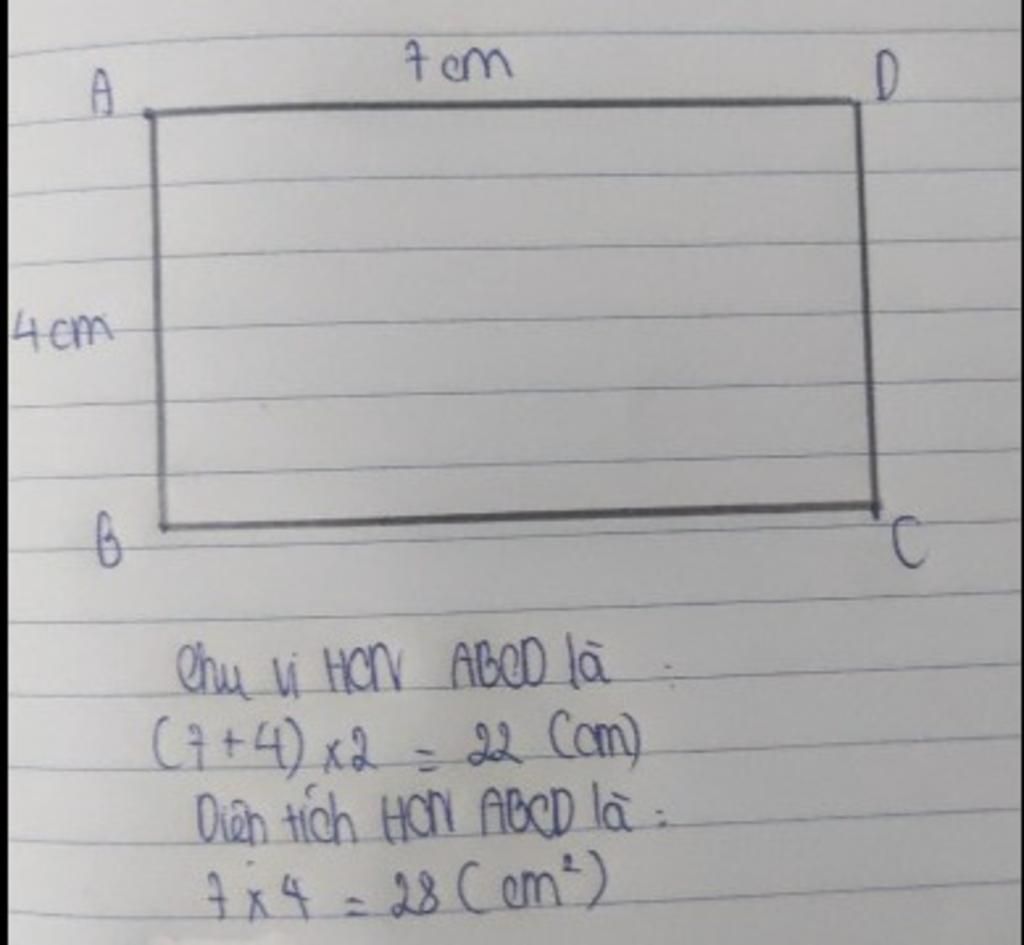 7 cm
A D
4 cm
B C
Chu vi HCN ABCD là :
(7+4) x2 = 22 (cm)
Diện tích HCN ABCD là :
7 x 4 = 28 (cm²)